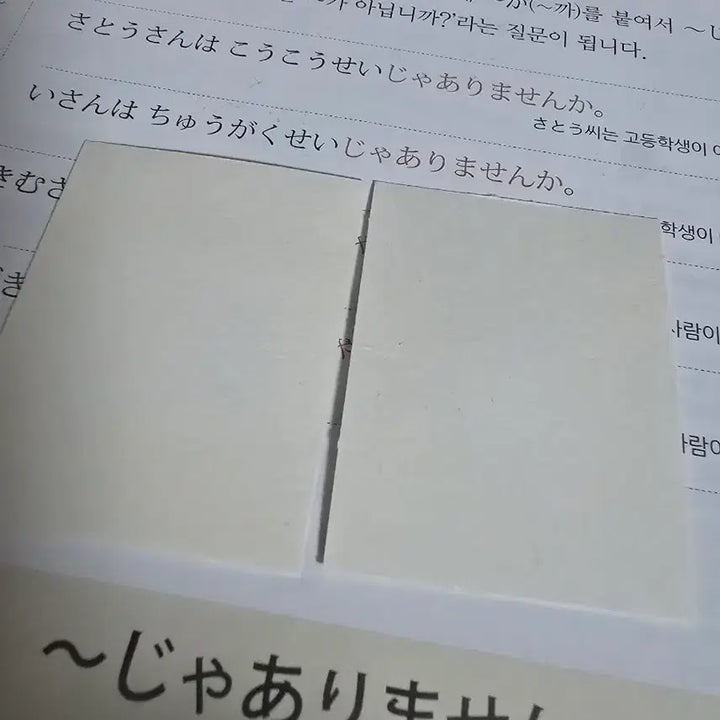 (~까)를 붙여서
아닙니까?'라는 질문이 됩니다.
さとうさんは こうこうせいじゃありませんか。
さとう씨는 고등학생이
いさんは ちゅうがくせいじゃありませんか。
きむさ
학생이
き
사람이
사람이
～じゃありません